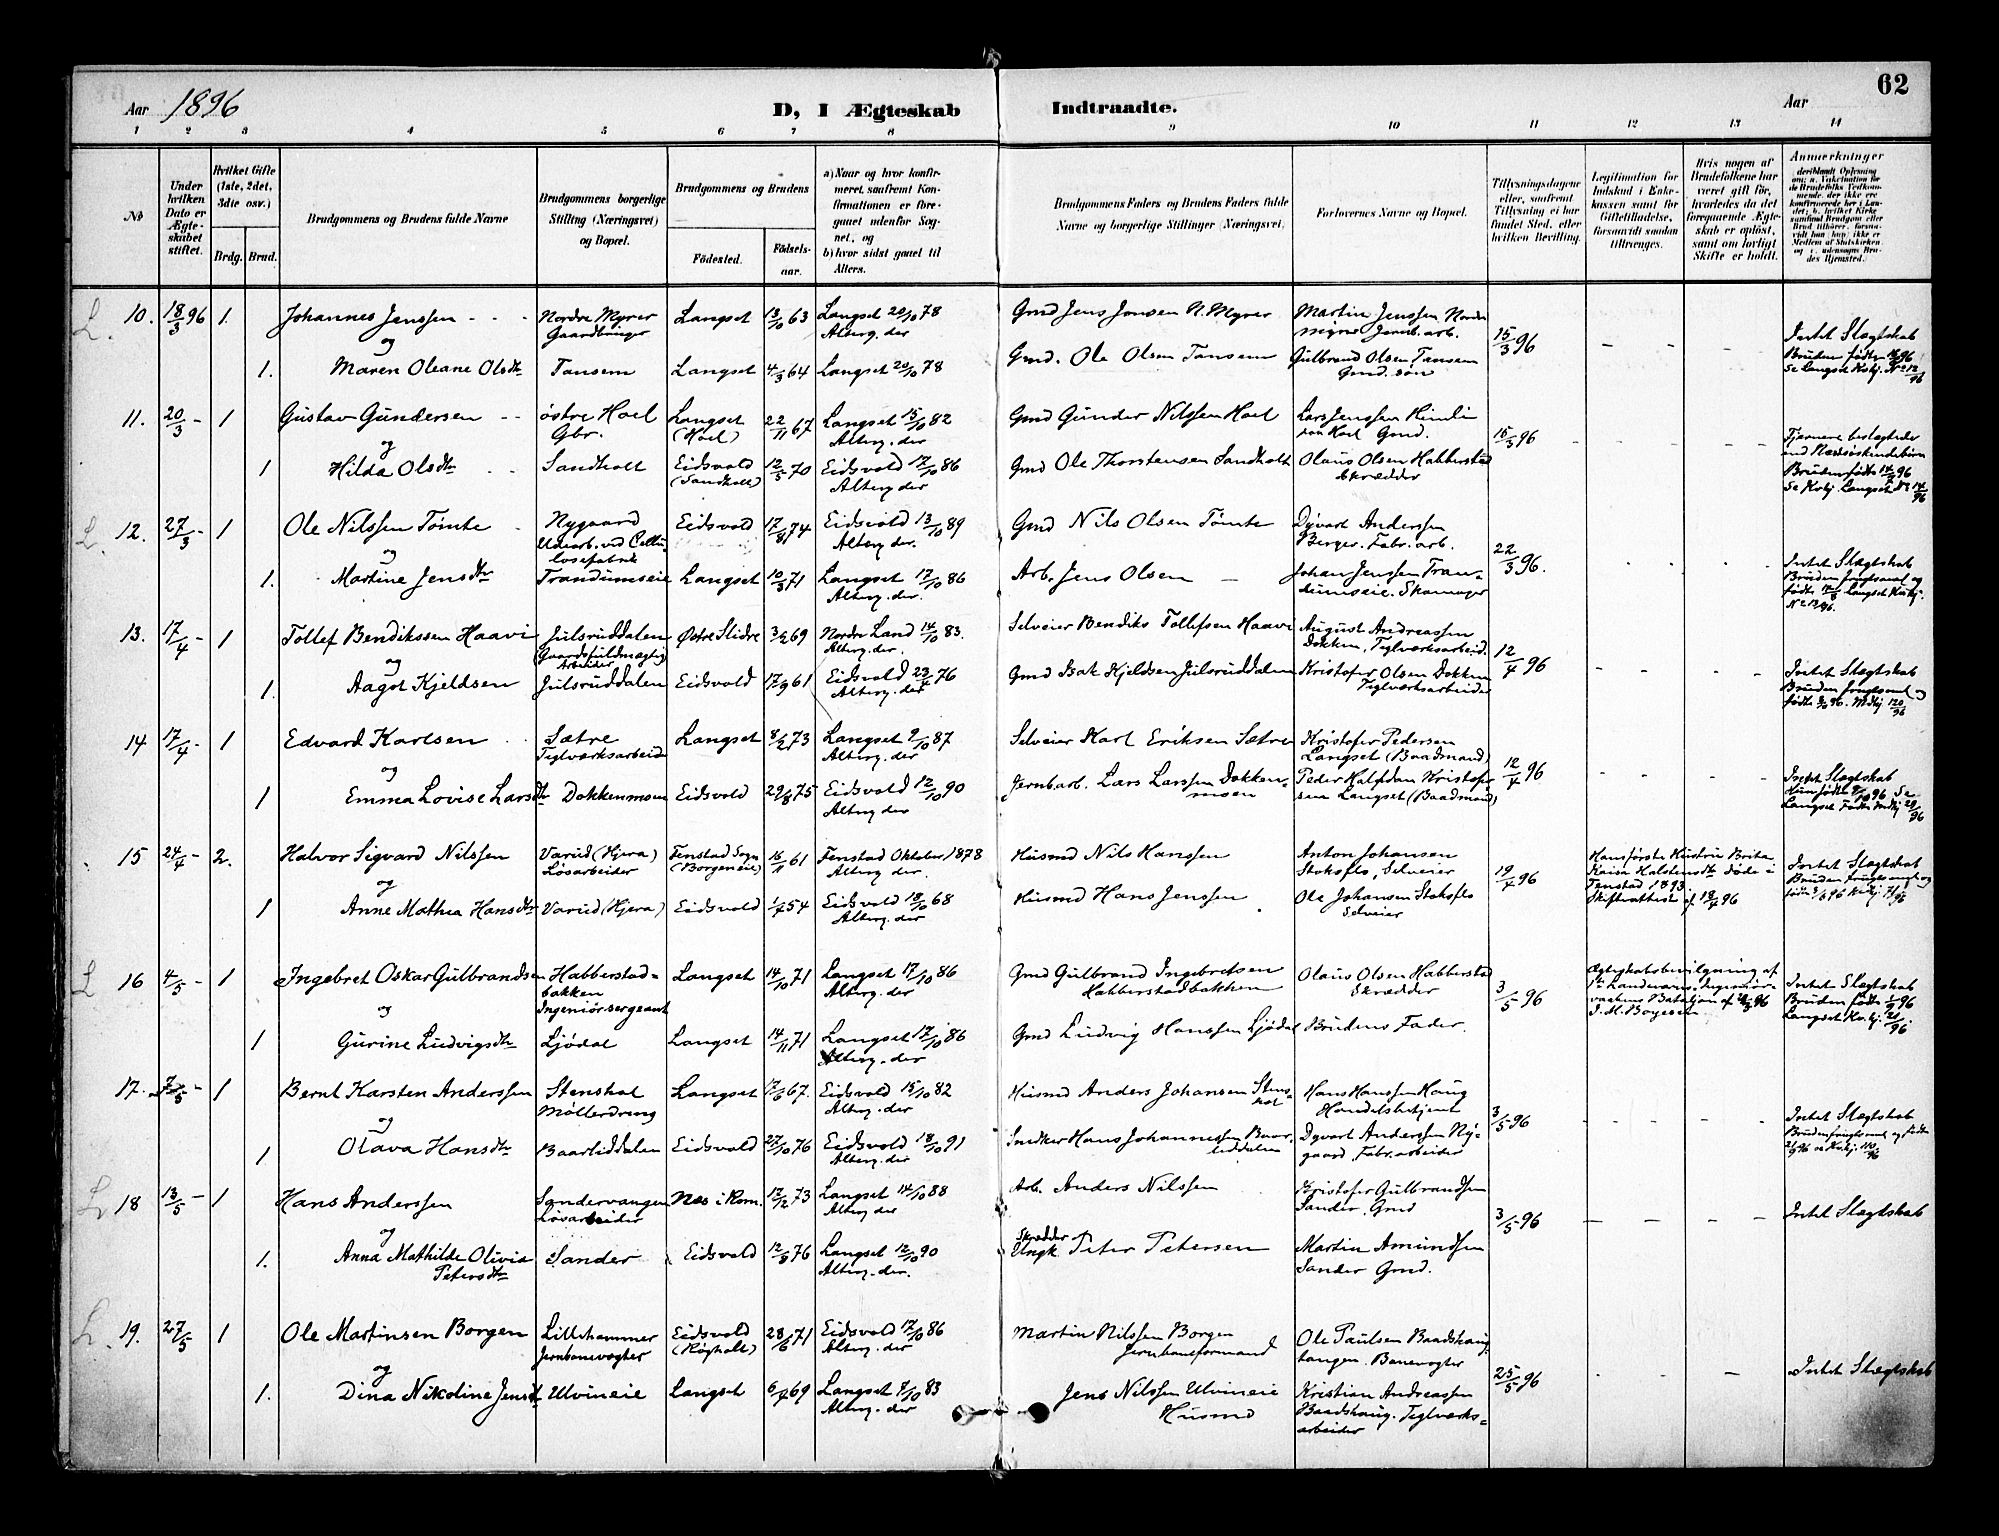 Aar 1896
D, I Ægteskab Indtraadte.
Aar
62
1 2 3 4 5 6 7 8 9 10 11 12 13 14
No
Under hvilken Dato er Ægteskabet stiftet.
Hvilket Gifte (1ste, 2det, 3die osv.)
Brdg. Brud.
Brudgommens og Brudens fulde Navne
Brudgommens borgerlige Stilling (Næringsvei) og Bopæl.
Brudgommens og Brudens
Födested.
Födsels-aar.
a) Naar og hvor konfirmeret, saafremt Konfirmationen er foregaaet udenfor Sognet, og
b) hvor sidst gaaet til Alters.
Brudgommens Faders og Brudens Faders fulde Navne og borgerlige Stillinger (Næringsvei)
Forlovernes Navne og Bopæl.
Tillysningsdagene eller, saafremt Tillysning ei har fundet Sted, efter hvilken Bevilling.
Legitimation for Indskud i Enkekassen samt for Giftetilladelse, forsaavidt saadan tiltrænges.
Hvis nogen af Brudefolkene har været gift för, hvorledes da det foregaaende Ægteskab er oplöst, samt om lovligt Skifte er holdt.
Anmærkninger
L. 10. 18/3 96 1. Johannes Jenssen Nordre Myrer Gaardbruger Langset 13/10 63 Langset 20/10 78 Alterg. der Gmd Jens Jonsen N. Myrer Martin Jenssen Nordre Jernb. arb. 15/3 96 Intet Slægtskab
og
1. Maren Oleane Olsdtr Tansem Langset 4/3 64 Langset 20/10 78 Gmd. Ole Olsen Tansem Gulbrand Olsen Tansem Gmd. søn
11. 20/3 - 1 Gustav Gundersen østre Hoel Gbr. Langset (Hoel) 22/11 67 Langset 15/10 82 Alterg. der Gmd Gunder Nilssen Hoel Lars Jenssen Gmd. 15/3 96
og
1 Hilda Olsdtr Sandholt Eidsvold (Sandholt) 12/5 70 Eidsvold 17/10 86 Alterg der Gmd Ole Thorstensen Sandholt Olaus Olsen Habberstad Skrædder
L. 12. 27/3 - 1 Ole Nilssen Tömte Nygaard Eidsvold 17/ 74 Eidsvold 13/10 89 Alterg. der. Gmd Nils Olsen Tömte Dyvart Anderssen Berger. Fabr. arb. 22/3 96. Intet Slægtskab
og
1. Martine Jensdtr Trandumseie Langset 10/3 71 Langset 17/10 86 Alterg. der. Arb. Jens Olsen Johan Jenssen Trandumseie. Skomager
13. 17/4 - 1 Tollef Bendikssen Haavi Julsruddalen (Gaardsfuldmægtig) Arbeider Østre Slidre 3/2 69 Nordre Land 14/10 83. Alterg. der. Selveier Bendiks Tollefsen Haavi August Andreassen Dokken, Teglværksarbeid. 12/4 96 Intet Slægtskab
og
1. Aagot Kjeldsen Julsruddalen Eidsvold 17/9 61 Eidsvold 23/4 76 Alterg. der Gmd Isak Kjeldsen Julsruddalen Kristofer Olsen Dokken Teglværksarbeider
14 17/4 - 1 Edvard Karlsen Sætre Teglværksarbeider Langset 8/2 73 Langset 9/10 87 Alterg. der Selveier Karl Eriksen Sætre Kristofer Pedersen Langset (Baadmand) 12/4 96 Intet Slægtskab
og
1 Emma Lovise Larsdtr Dokkenmoen Eidsvold 29/8 75 Eidsvold 12/10 90 Alterg der Jernb.arb. Lars Larssen Dokkenmoen Peder Halfdan Kristofersen Langset (Baadmand)
15 24/4 - 2. Halvor Sigvard Nilssen Varud (Hjera) Løsarbeider Fenstad Sogn (Borgeneie) 16/11 61 Fenstad Oktober 1878 Alterg. der. Husmd Nils Hanssen Anton Johansen Stoksflo, Selveier 19/4 96 Hans første Hustru Brita Karin Halstensdtr døde i Fenstad 1893 Skifteattest af 18/4 96 Intet Slægtskab
og
1 Anne Mathea Hansdtr Varud (Hjera) Eidsvold 1/7 54 Eidsvold 18/10 68 Alterg. der Husmd Hans Jenssen Ole Johansen Stoksflo Selveier
L 16 4/5 - 1 Ingebret Oskar Gulbrandsen Habberstadbakken Ingeniörsergeant Langset 14/10 71 Langset 17/10 86 Alterg. der Gmd Gulbrand Ingebretsen Habberstadbakken Olaus Olsen Habberstad Skrædder 3/5 96 Intet Slægtskab
og
1 Gurine Ludvigsdtr Ljödal Langset 14/11 71 Langset 17/10 86 Alterg. der Gmd Ludvig Hanssen Ljödal Brudens Fader.
17. 7/5 - 1 Bernt Karsten Anderssen Stenshol Möllerdreng Langset 17/6 67. Eidsvold 15/10 82 Alterg. der Husmd Anders Johansen Hans Hanssen Haug Handelsbetjent 3/5 96 Intet Slægtskab
og
1 Olava Hansdtr Baarliddalen Eidsvold 27/10 76 Eidsvold 18/10 91 Alterg. der Snedker Hans Johannessen Baarliddalen Dyvart Anderssen Nygaard Fabr. arbeider
L 18 13/5 - 1 Hans Anderssen Søndervangen Løsarbeider Nes i Rom. 12/2 73 Langset 14/10 88 Alterg der Arb. Anders Nilssen Kristofer Gulbrandsen Sander, Gmd 3/5 96 Intet Slægtskab
og
1. Anna Mathilde Olivia Petersdtr Sander Eidsvold 12/8 76 Langset 12/10 90 Alterg. der. Skrædder Ungk Peter Petersen Martin Amundsen Sander Gmd.
L. 19. 27/5 1 Ole Martinsen Borgen Lillehammer Jernbanevogter Eidsvold (Røgholt) 28/6 71 Eidsvold 17/10 86 Alterg. der. Martin Nilssen Borgen Jernbaneformand Ole Paulsen Baadshaug Banevogter 25/5 96 Intet Slægtskab
og
1. Dina Nikoline Jensdtr Ulvineie Langset 6/7 69 Langset 7/10 83 Alterg. der Jens Nilssen Ulvineie Husmd Kristian Andreassen Baadshaug. Teglværksarbeider